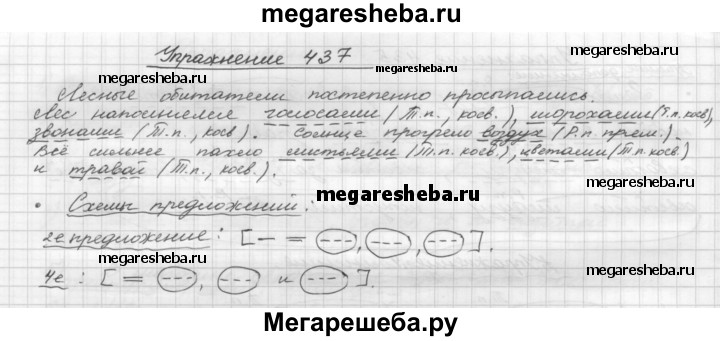 megaresheba.ru
Упражнение 437
megaresheba.ru megaresheba.ru
Лесные обитатели постепенно просыпались.
Лес наполнился голосами (Т.п., косв.), шорохами (Т.п. косв),
звонами (Т.п., косв). Солнце прогрело воздух (Р.п. прям.).
Всё сильнее пахло листьями (Т.п. косв), цветами (Т.п. косв)
и травой (Т.п., косв.).
megaresheba.ru
• Схемы предложений:
2е предложение: [— = (---), (---), (---)].
megaresheba.ru megaresheba.ru
4е: [= (---), (---) и (---)].
Мегарешеба.ру